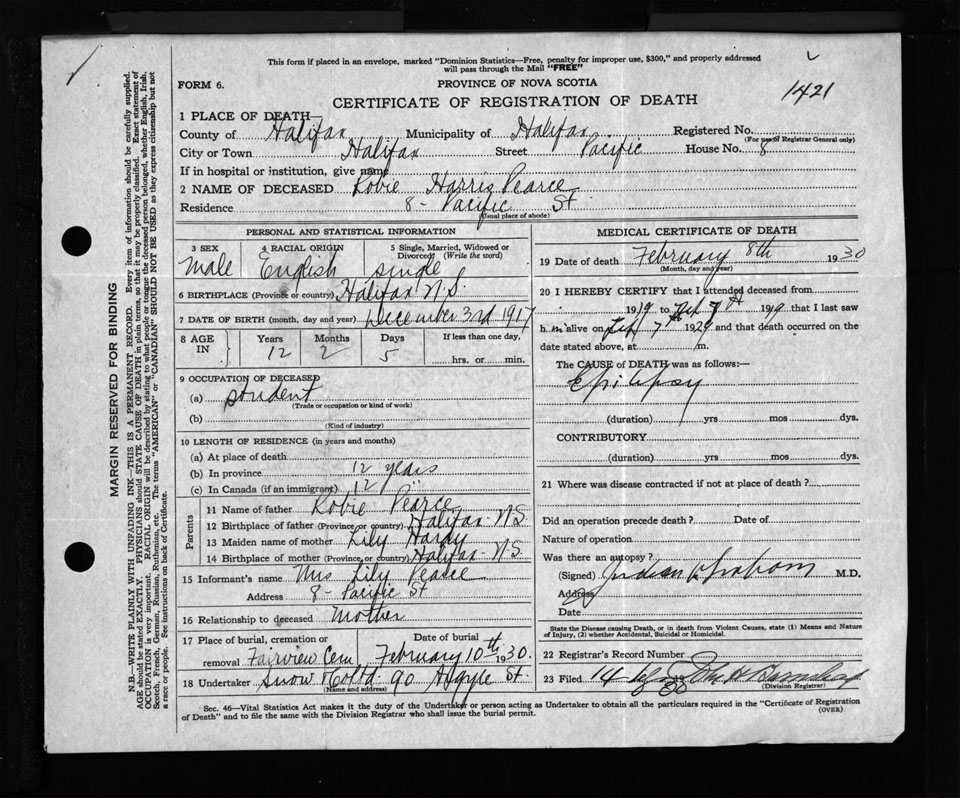 This form if placed in an envelope, marked "Dominion Statistics—Free, penalty for improper use, $300," and properly addressed
will pass through the Mail "FREE"
FORM 6.
PROVINCE OF NOVA SCOTIA
CERTIFICATE OF REGISTRATION OF DEATH
1421
1 PLACE OF DEATH
County of Halifax Municipality of Halifax Registered No.
(For use of Registrar General only)
City or Town Halifax Street Pacific House No. 8
If in hospital or institution, give name
2 NAME OF DECEASED Robie Harris Pearce
Residence 8 - Pacific St
(Usual place of abode)
PERSONAL AND STATISTICAL INFORMATION
3 SEX 4 RACIAL ORIGIN 5 Single, Married, Widowed or Divorced (Write the word)
Male English single
6 BIRTHPLACE (Province or country) Halifax N.S.
7 DATE OF BIRTH (month, day and year) December 3rd 1917
8 AGE IN Years Months Days If less than one day,
12 2 5 hrs. or min.
9 OCCUPATION OF DECEASED
(a) student
(Trade or occupation or kind of work)
(b)
(Kind of industry)
10 LENGTH OF RESIDENCE (in years and months)
(a) At place of death
(b) In province 12 years
(c) In Canada (if an immigrant) 12 "
Parents
11 Name of father Robie Pearce
12 Birthplace of father (Province or country) Halifax N.S.
13 Maiden name of mother Lily Hardy
14 Birthplace of mother (Province or country) Halifax - N.S.
15 Informant's name Mrs Lily Pearce
Address 8 - Pacific St
16 Relationship to deceased Mother
17 Place of burial, cremation or Date of burial
removal Fairview Cem February 10th 1930.
18 Undertaker Snow & Co Ltd 90 Argyle St.
(Name and address)
MEDICAL CERTIFICATE OF DEATH
19 Date of death February 8th 1930
(Month, day and year)
20 I HEREBY CERTIFY that I attended deceased from
19 to Feb 7th 19 that I last saw
him alive on Feb 7 1929 and that death occurred on the
date stated above, at m.
The CAUSE of DEATH was as follows:—
Epilepsy
(duration) yrs mos dys.
CONTRIBUTORY
(duration) yrs mos dys.
21 Where was disease contracted if not at place of death?
Did an operation precede death? Date of
Nature of operation
Was there an autopsy?
(Signed) M.D.
Address
Date
State the Disease causing Death, or in death from Violent Causes, state (1) Means and Nature
of Injury, (2) whether Accidental, Suicidal or Homicidal.
22 Registrar's Record Number
23 Filed 14 19 30
(Division Registrar)
Sec. 46—Vital Statistics Act makes it the duty of the Undertaker or person acting as Undertaker to obtain all the particulars required in the "Certificate of Registration
of Death" and to file the same with the Division Registrar who shall issue the burial permit.
(OVER)
MARGIN RESERVED FOR BINDING
N.B.—WRITE PLAINLY WITH UNFADING INK—THIS IS A PERMANENT RECORD. Every item of information should be carefully supplied.
AGE should be stated EXACTLY. PHYSICIANS should STATE CAUSE OF DEATH in plain terms, so that it may be properly classified. Exact statement of
OCCUPATION is very important. RACIAL ORIGIN will be described by stating to what people or tongue the deceased person belonged, whether English, Irish,
Scotch, French, German, Russian, Ruthenian, etc. The terms "AMERICAN" or "CANADIAN" SHOULD NOT BE USED as they express citizenship but not
a race or people. See instructions on back of Certificate.